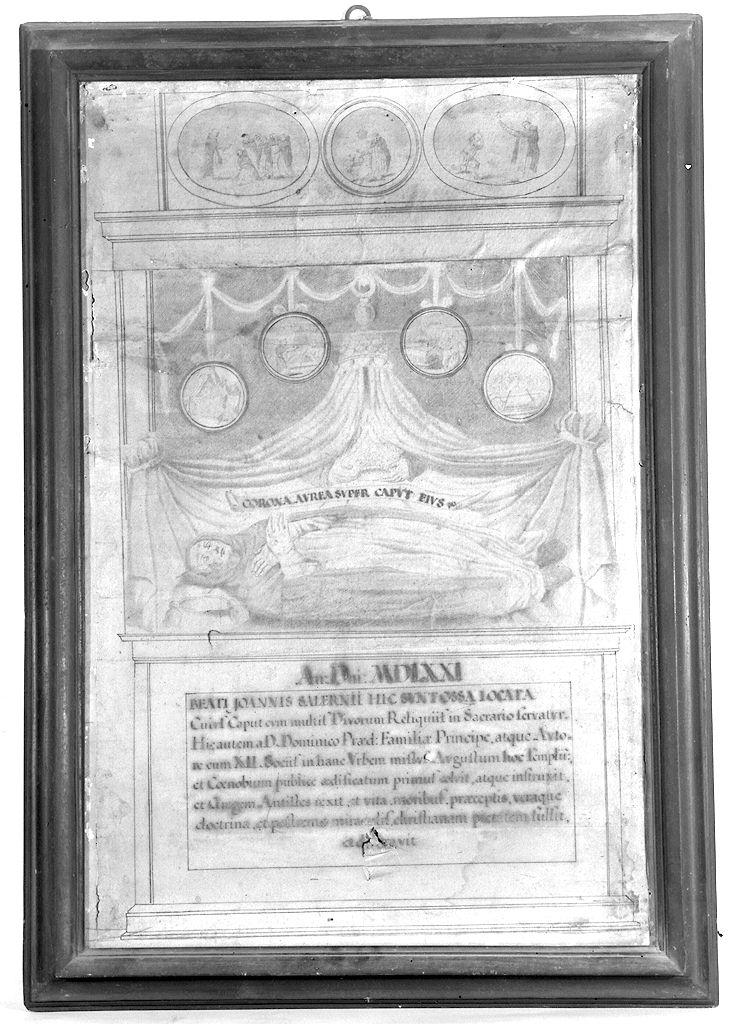 CORONA AVREA SVPER CAPVT EIVS
An: Dni: MDLXXI
BEATI JOANNIS SALERNII HIC SVNT OSSA LOCATA
Cuius Caput cvm multis Divorum Reliquiis in Sacrario servatvr.
Hic autem a D. Dominico Præd: Familiæ Principe, atque Avto-
re cum XII. Sociis in hanc Vrbem missvs Avgustum hoc Templū;
et Cœnobium publice ædificatum primus colvit, atque instruxit,
et Gregem Antistes rexit, et vita, moribus, præceptis, veraque
doctrina, et postremo miraculis, christianam pietatem